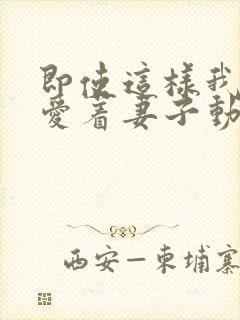 即使這樣我
愛着妻子動
西安—柬埔寨